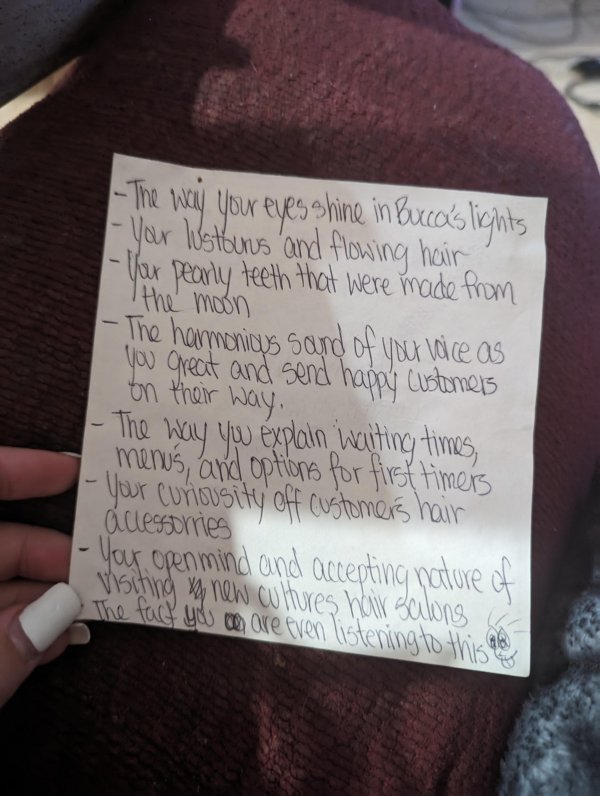 - The way your eyes shine in Bucca's lights
- Your lustburus and flowing hair
- Your pearly teeth that were made from
the moon
- The harmonious sound of your voice as
you great and send happy customers
on their way.
- The way you explain waiting times,
menu's, and options for first timers
- Your curiousity off customer's hair
accessorries
- Your openmind and accepting nature of
visiting new cultures hair salons
The fact you are even listening to this